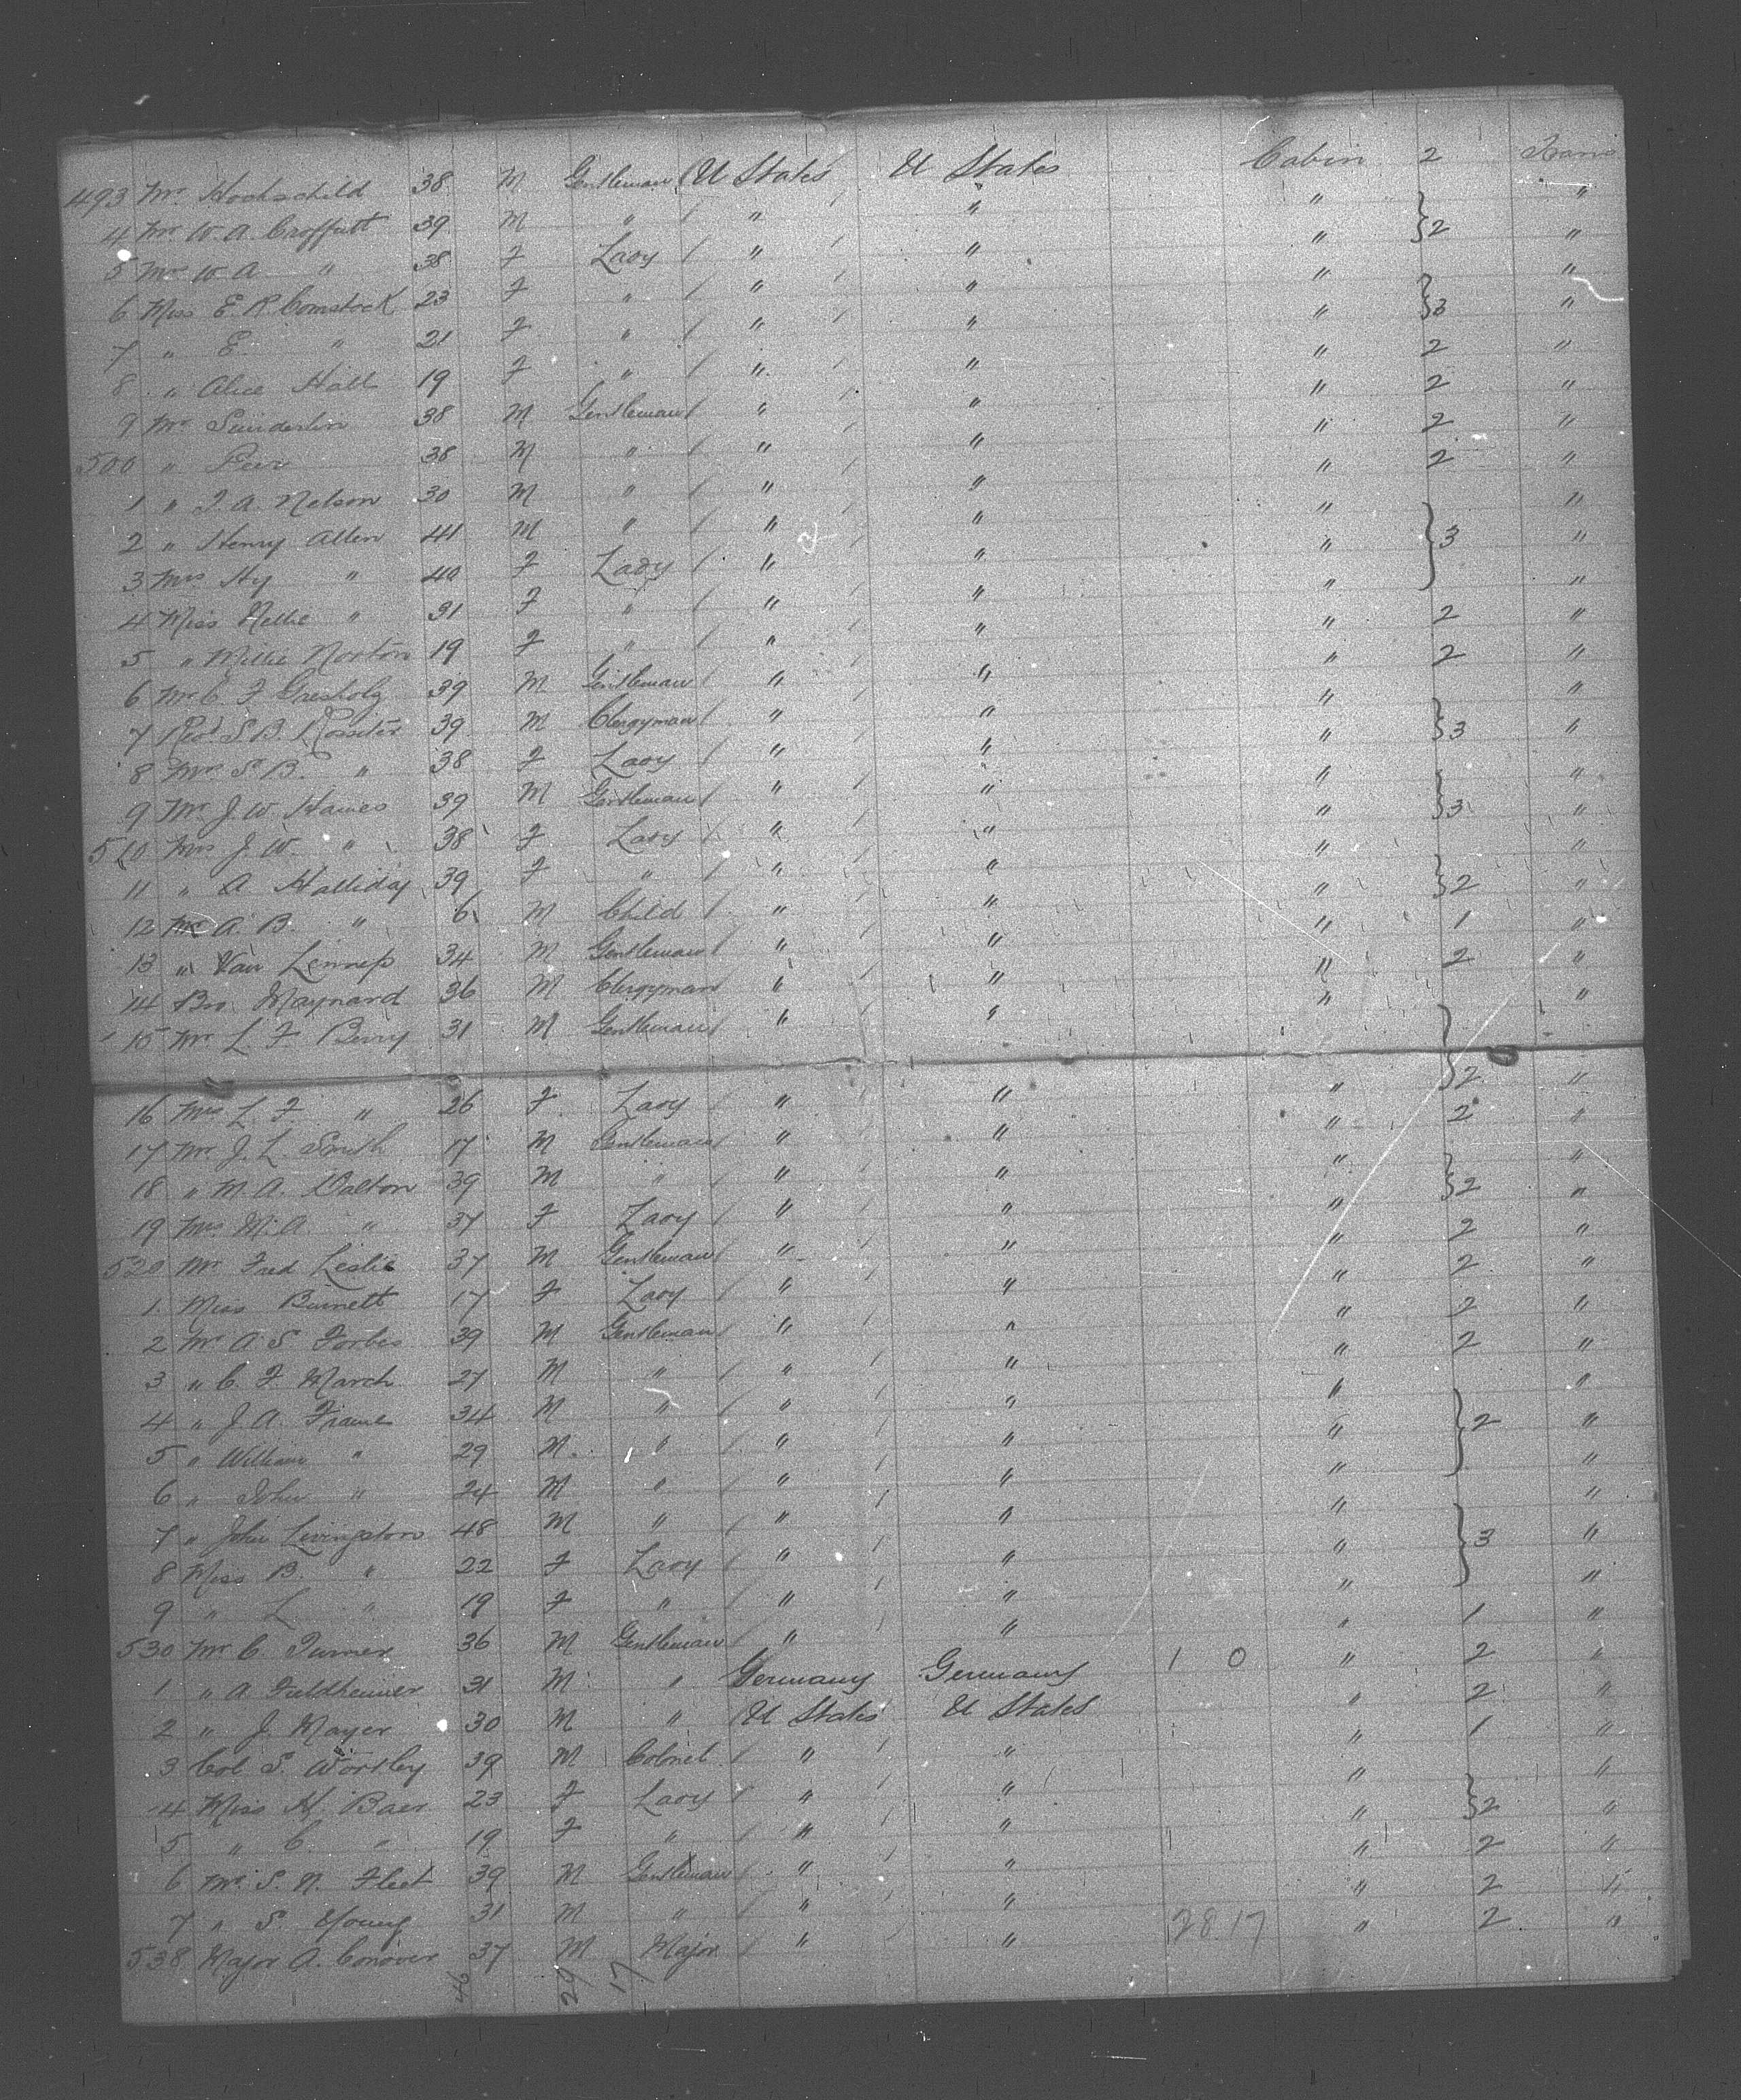 493 Mr Hochschild 38 M Gentleman U States U States Cabin 2 Trans
4 Mr W. A. Croffutt 39 M " " " " "
5 Mrs W A " 38 F Lady " " " } 2 "
6 Miss E. R. Comstock 23 F " " " " "
7 " E. " 21 F " " " " } 3 "
8 " Alice Hall 19 F " " " " 2 "
9 Mr Sunderlin 38 M Gentleman " " " 2 "
500 " Peer 38 M " " " " 2 "
1 " T. A. Nelson 30 M " " " " 2 "
2 " Henry Allen 41 M " " " " "
3 Mrs Hy " 40 F Lady " " " } 3 "
4 Miss Nellie " 31 F " " " " "
5 " Millie Norton 19 F " " " " 2 "
6 Mr C. F. 39 M Gentleman " " " 2 "
7 Rev S. B. Rossiter 39 M Clergyman " " " "
8 Mrs S. B. " 38 F Lady " " " } 3 "
9 Mr J. W. Hawes 39 M Gentleman " " " "
510 Mrs J. W. " 38 F Lady " " " } 3 "
11 " A. Halliday 39 F " " " " "
12 A. B. " 6 M Child " " " } 2 "
13 " Van Lennep 34 M Gentleman " " " 1 "
14 Maynard 36 M Clergyman " " " 2 "
15 Mr L F Berry 31 M Gentleman " " " "
16 Mrs L. F " 26 F Lady " " " } 2 "
17 Mr J. L. Smith 17 M Gentleman " " " 2 "
18 " M. A. Dalton 39 M " " " " "
19 Mrs M. A. " 37 F Lady " " " } 2 "
520 Mr Fred Leslie 37 M Gentleman " " " 2 "
1 Miss Burnett 17 F Lady " " " 2 "
2 Mr A. S. Forbes 39 M Gentleman " " " 2 "
3 " C. F. March 27 M " " " " 2 "
4 " J. A. Frame 34 M " " " " "
5 " William " 29 M " " " " } 2 "
6 " John " 24 M " " " " "
7 " John Livingston 48 M " " " " "
8 Miss B. " 22 F Lady " " " } 3 "
9 " L " 19 F " " " " "
530 Mr C. Turner 36 M Gentleman " " " 1 "
1 " A Feldheimer 31 M " Germany Germany 1 0 " 2 "
2 " J. Mayer 30 M " U States U States " 2 "
3 Col S. Wortley 39 M Colonel " " " 1 "
4 Miss M. Baer 23 F Lady " " " "
5 " C. " 19 F " " " " } 2 "
6 Mr S. N. Fleet 39 M Gentleman " " " 2 "
7 " S. Young 31 M " " " " 2 "
538 Major A. Conover 37 M Major " " 28 17 " 2 "
46 29 17